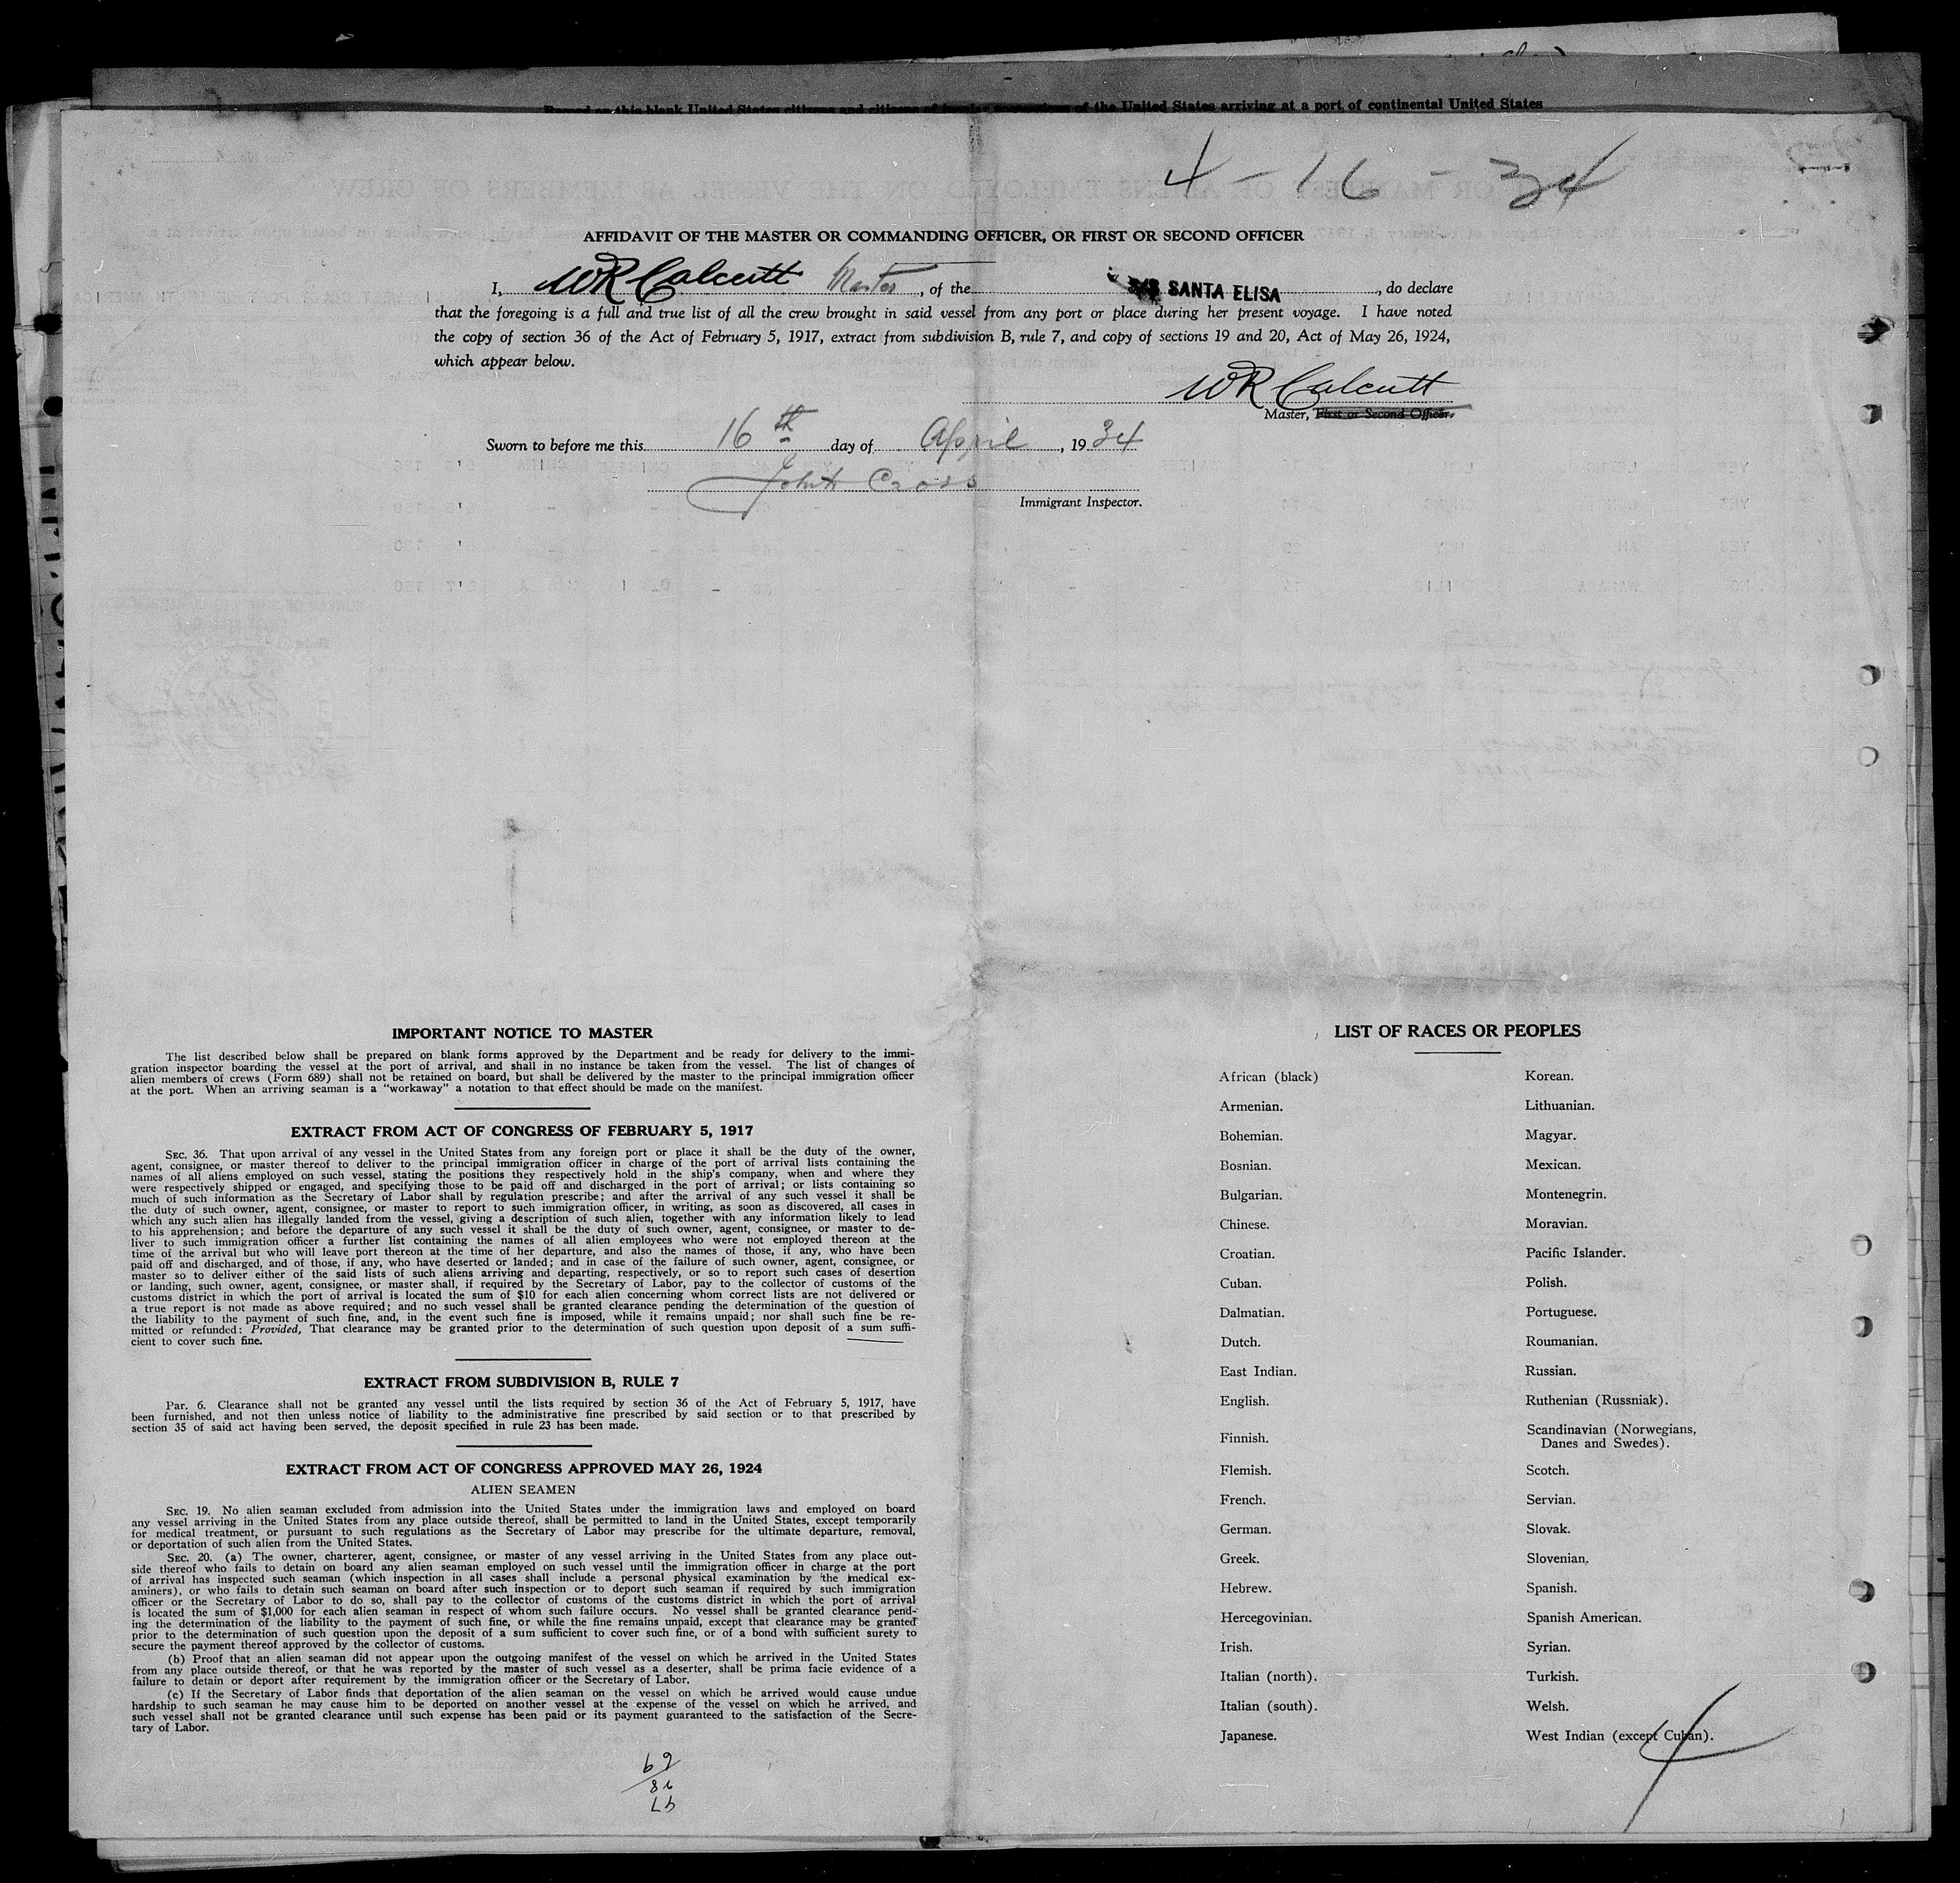 Record on this blank United States citizens and citizens of insular possessions of the United States arriving at a port of continental United States
4 - 16 - 34
AFFIDAVIT OF THE MASTER OR COMMANDING OFFICER, OR FIRST OR SECOND OFFICER
I, WR Calcutt Master, of the S/S SANTA ELISA, do declare
that the foregoing is a full and true list of all the crew brought in said vessel from any port or place during her present voyage. I have noted
the copy of section 36 of the Act of February 5, 1917, extract from subdivision B, rule 7, and copy of sections 19 and 20, Act of May 26, 1924,
which appear below.
WR Calcutt
Master, First or Second Officer.
Sworn to before me this 16th day of April, 1934
John Cross
Immigrant Inspector.
IMPORTANT NOTICE TO MASTER
The list described below shall be prepared on blank forms approved by the Department and be ready for delivery to the immi-
gration inspector boarding the vessel at the port of arrival, and shall in no instance be taken from the vessel. The list of changes of
alien members of crews (Form 689) shall not be retained on board, but shall be delivered by the master to the principal immigration officer
at the port. When an arriving seaman is a "workaway" a notation to that effect should be made on the manifest.
EXTRACT FROM ACT OF CONGRESS OF FEBRUARY 5, 1917
SEC. 36. That upon arrival of any vessel in the United States from any foreign port or place it shall be the duty of the owner,
agent, consignee, or master thereof to deliver to the principal immigration officer in charge of the port of arrival lists containing the
names of all aliens employed on such vessel, stating the positions they respectively hold in the ship's company, when and where they
were respectively shipped or engaged, and specifying those to be paid off and discharged in the port of arrival; or lists containing so
much of such information as the Secretary of Labor shall by regulation prescribe; and after the arrival of any such vessel it shall be
the duty of such owner, agent, consignee, or master to report to such immigration officer, in writing, as soon as discovered, all cases in
which any such alien has illegally landed from the vessel, giving a description of such alien, together with any information likely to lead
to his apprehension; and before the departure of any such vessel it shall be the duty of such owner, agent, consignee, or master to de-
liver to such immigration officer a further list containing the names of all alien employees who were not employed thereon at the
time of the arrival but who will leave port thereon at the time of her departure, and also the names of those, if any, who have been
paid off and discharged, and of those, if any, who have deserted or landed; and in case of the failure of such owner, agent, consignee, or
master so to deliver either of the said lists of such aliens arriving and departing, respectively, or so to report such cases of desertion
or landing, such owner, agent, consignee, or master shall, if required by the Secretary of Labor, pay to the collector of customs of the
customs district in which the port of arrival is located the sum of $10 for each alien concerning whom correct lists are not delivered or
a true report is not made as above required; and no such vessel shall be granted clearance pending the determination of the question of
the liability to the payment of such fine, and, in the event such fine is imposed, while it remains unpaid; nor shall such fine be re-
mitted or refunded: Provided, That clearance may be granted prior to the determination of such question upon deposit of a sum suffi-
cient to cover such fine.
EXTRACT FROM SUBDIVISION B, RULE 7
Par. 6. Clearance shall not be granted any vessel until the lists required by section 36 of the Act of February 5, 1917, have
been furnished, and not then unless notice of liability to the administrative fine prescribed by said section or to that prescribed by
section 35 of said act having been served, the deposit specified in rule 23 has been made.
EXTRACT FROM ACT OF CONGRESS APPROVED MAY 26, 1924
ALIEN SEAMEN
SEC. 19. No alien seaman excluded from admission into the United States under the immigration laws and employed on board
any vessel arriving in the United States from any place outside thereof, shall be permitted to land in the United States, except temporarily
for medical treatment, or pursuant to such regulations as the Secretary of Labor may prescribe for the ultimate departure, removal,
or deportation of such alien from the United States.
SEC. 20. (a) The owner, charterer, agent, consignee, or master of any vessel arriving in the United States from any place out-
side thereof who fails to detain on board any alien seaman employed on such vessel until the immigration officer in charge at the port
of arrival has inspected such seaman (which inspection in all cases shall include a personal physical examination by the medical ex-
aminers), or who fails to detain such seaman on board after such inspection or to deport such seaman if required by such immigration
officer or the Secretary of Labor to do so, shall pay to the collector of customs of the customs district in which the port of arrival
is located the sum of $1,000 for each alien seaman in respect of whom such failure occurs. No vessel shall be granted clearance pend-
ing the determination of the liability to the payment of such fine, or while the fine remains unpaid, except that clearance may be granted
prior to the determination of such question upon the deposit of a sum sufficient to cover such fine, or of a bond with sufficient surety to
secure the payment thereof approved by the collector of customs.
(b) Proof that an alien seaman did not appear upon the outgoing manifest of the vessel on which he arrived in the United States
from any place outside thereof, or that he was reported by the master of such vessel as a deserter, shall be prima facie evidence of a
failure to detain or deport after requirement by the immigration officer or the Secretary of Labor.
(c) If the Secretary of Labor finds that deportation of the alien seaman on the vessel on which he arrived would cause undue
hardship to such seaman he may cause him to be deported on another vessel at the expense of the vessel on which he arrived, and
such vessel shall not be granted clearance until such expense has been paid or its payment guaranteed to the satisfaction of the Secre-
tary of Labor.
LIST OF RACES OR PEOPLES
African (black)
Armenian.
Bohemian.
Bosnian.
Bulgarian.
Chinese.
Croatian.
Cuban.
Dalmatian.
Dutch.
East Indian.
English.
Finnish.
Flemish.
French.
German.
Greek.
Hebrew.
Hercegovinian.
Irish.
Italian (north).
Italian (south).
Japanese.
Korean.
Lithuanian.
Magyar.
Mexican.
Montenegrin.
Moravian.
Pacific Islander.
Polish.
Portuguese.
Roumanian.
Russian.
Ruthenian (Russniak).
Scandinavian (Norwegians,
Danes and Swedes).
Scotch.
Servian.
Slovak.
Slovenian.
Spanish.
Spanish American.
Syrian.
Turkish.
Welsh.
West Indian (except Cuban).
4